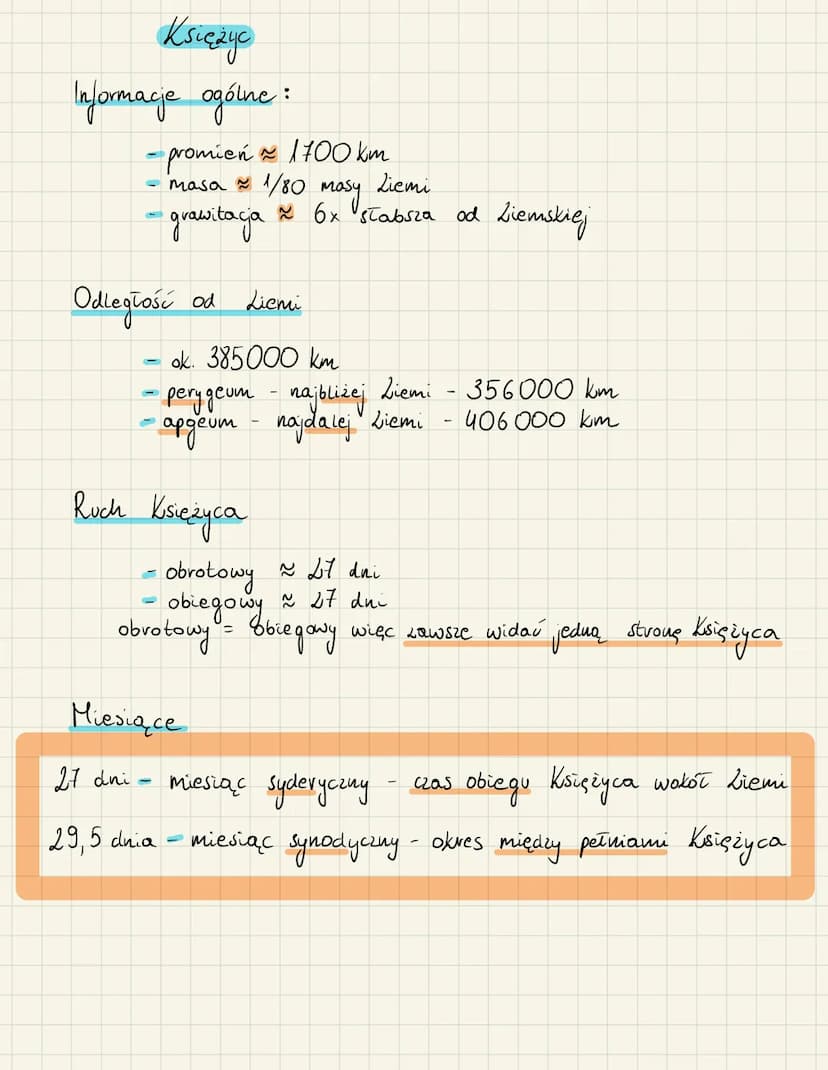 Księżyc
Informacje ogólne:
- promień ≈ 1700 km
- masa ≈ 1/80 masy Ziemi
- grawitacja ≈ 6x słabsza od Ziemskiej
Odległość od Ziemi
- ok. 385000 km
- perygeum - najbliżej Ziemi - 356000 km
- apgeum - najdalej Ziemi - 406 000 km
Ruch Księżyca
- obrotowy ≈ 27 dni
- obiegowy ≈ 27 dni
obrotowy = obiegowy więc zawsze widać jedną stronę Księżyca
Miesiące
27 dni - miesiąc syderyczny - czas obiegu Księżyca wokół Ziemi
29,5 dnia - miesiąc synodyczny - okres między pełniami Księżyca